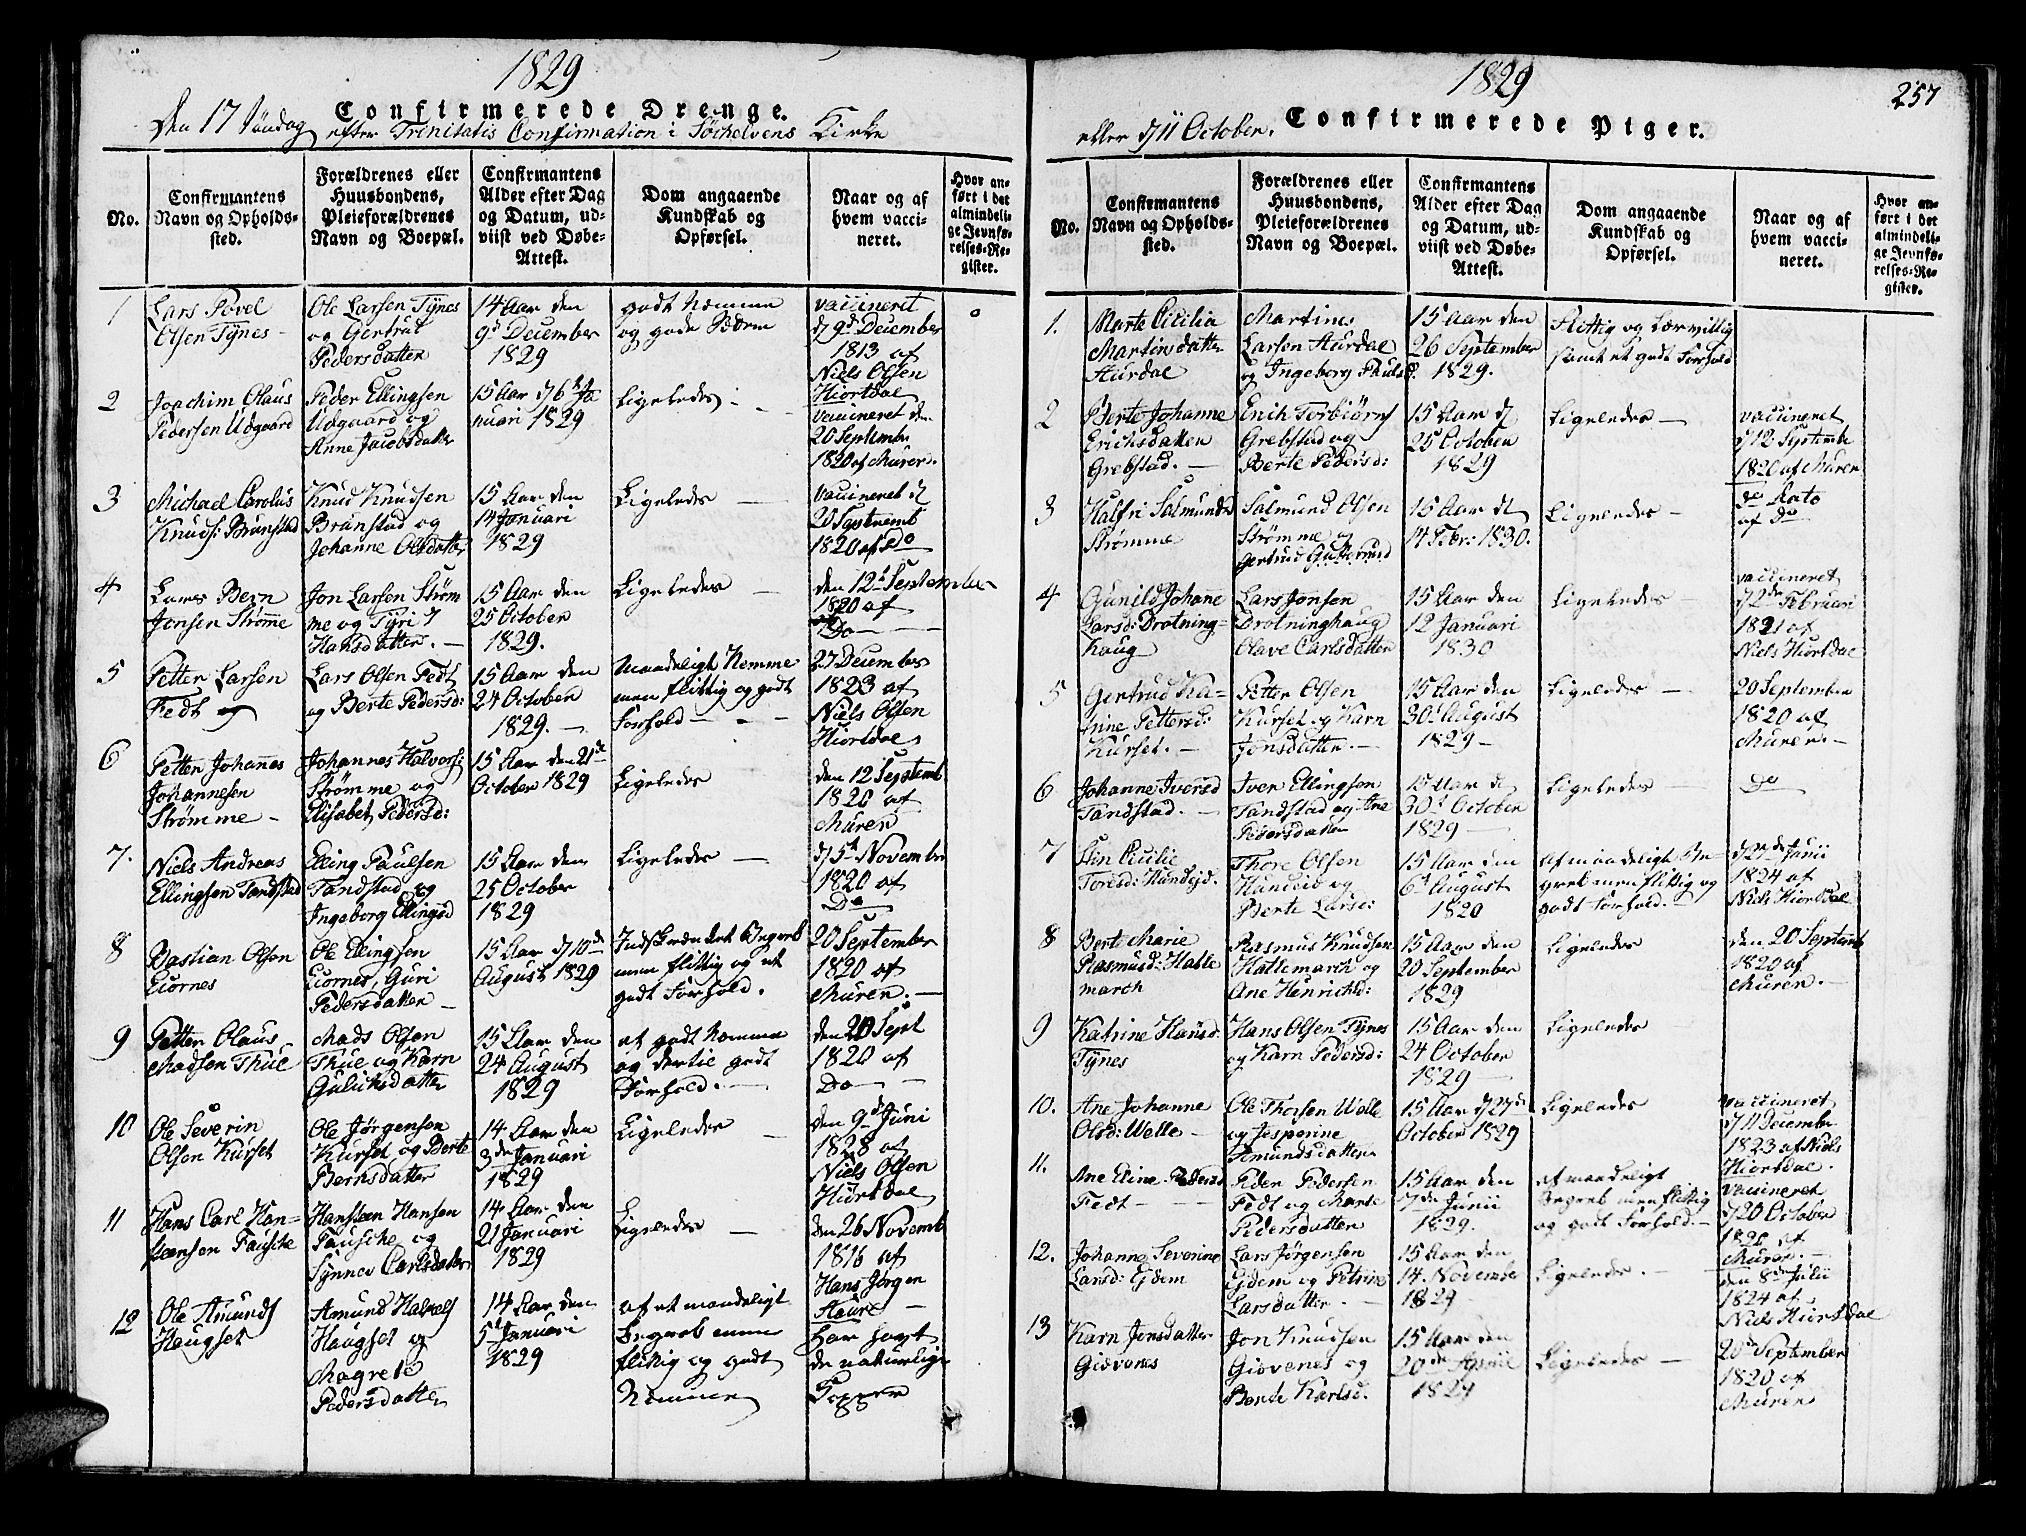 1829
Confirmerede Drenge.
Den 17 Søndag efter Trinitatis Confirmation i Kirke
No.
Confirmantens
Navn og Opholds-
sted.
Forældrenes eller
Huusbondens,
Pleieforældrenes
Navn og Boepæl.
Confirmantens
Alder efter Dag
og Datum, ud-
viist ved Døbe-
Attest.
Dom angaaende
Kundskab og
Opførsel.
Naar og af
hvem vacci-
neret.
Hvor an-
ført i det
almindeli-
ge Jevnfø-
relses-Re-
gister.
1
Lars Povel
Olsen Tynes
Ole Larsen Tynes
og Gertrut
Pedersdatter
14 Aar den
9d December
1829
godt Nemme
og gode Sæder
vaccineret
d 9d December
1813 af
Niels Olsen
Hiortdal
2
Joachim Olaus
Pedersen Udgaard
Peder Ellingsen
Udgaard og
Anne Jacobsdatter
15 Aar d 6t Ja
nuari 1829
Ligeledes
Vaccineret den
20 Septembr
1820 af Muren
3
Michael Carolus
Knuds: Brunstad
Knud Knudsen
Brunstad og
Johanne Olsdatter
15 Aar den
14 Januari
1829
Ligeledes
Vaccineret d
20 Septemb
1820 af Do
4
Lars Bern
Jonsen Strømme
Jon Larsen Strøm
me og Tyri
Hansdatter.
15 Aar den
25 October
1829.
Ligeledes
den 12t September
1820 af
Do
5
Petter Larsen
Fedt
Lars Olsen Fedt
og Berte Pedersd:
15 Aar den
24 October
1829.
Maadeligt Nemme
men flittig og godt
Forhold
27 December
1823 af
Niels Olsen
Hiortdal
6
Petter Johanes
Johannesen
Strømme
Johannes Halvors:
Strømme og
Elisabet Pedersd:
15 Aar den 21de
October 1829
Ligeledes
den 12 Septemb
1820 af
Muren
7.
Niels Andreas
Ellingsen Tandstad
Elling Paulsen
Tandstad og
Ingeborg Ellingsd
15 Aar den
25 October
1829
Ligeledes
d 5t Novembr
1820 af
Do
8
Bastian Olsen
Eiornes
Ole Ellingsen
Eiornes, Guri
Pedersdatter
15 Aar d 10de
August 1829
Indskrænket Begreb
men flittig og et
godt Forhold.
20 September
1820 af
Muren.
9
Petter Olaus
Madsen Thue
Mads Olsen
Thue og Karn
Guliksdatter
15 Aar den
24 August
1829
et godt Nemme
og dertil godt
Forhold.
den 20 Sept
1820 af
Do
10
Ole Severin
Olsen Kurset
Ole Jørgensen
Kurset og Berte
Berntsdatter
14 Aar den
3de Januari
1829
Ligeledes
den 9d Juni
1828 af
Niels Olsen
Hiortdal
11
Hans Carl Han-
steensen Fauske
Hansteen Hansen
Fauske og
Synnev Carlsdatter
14 Aar den
21 Januari
1829
Ligeledes
den 26 Novemb
1816 af
Hans Jørgen
Aaure
12
Ole Amunds
Haugset
Amund Halvols
Haugset og
Magrete
Pedersdatter
14 Aar den
5t Januari
1829
af et maadeligt
Begreb men
flittig og godt
Nemme
har havt
de naturlige
Copper
88
1829
257
Confirmerede Piger.
eller d 11 October.
No.
Confirmantens
Navn og Opholds-
sted.
Forældrenes eller
Huusbondens,
Pleieforældrenes
Navn og Boepæl.
Confirmantens
Alder efter Dag
og Datum, ud-
viist ved Døbe-
Attest.
Dom angaaende
Kundskab og
Opførsel.
Naar og af
hvem vacci-
neret.
Hvor an-
ført i det
almindeli-
ge Jevnfø-
relses-Re-
gister.
1.
Marte Cicilia
Martinsdatter
Aurdal
Martines
Larsen Aurdal
og Ingeborg Paulsd.
15 Aar den
26 September
1829.
Flittig og Lærvillig
samt et godt Forhold
2
Berte Johanne
Erichsdatter
Grebstad.
Erich Torbiørns
Grebstad og
Berte Pedersd:
15 Aar d
25 October
1829
Ligeledes
vaccineret
d 12 Septembe
1820 af Muren
3
Halfri Salmunds
Strømme
Salmund Olsen
Strømme og
Gertrud
15 Aar d
14 Febr: 1830.
Ligeledes
do Dato
af Do
4
Gunild Johane
Larsd: Drotning-
haug
Lars Jonsen
Drotninghaug
Olave Carlsdatter
15 Aar den
12 Januari
1830
Ligeledes
vaccineret
d 2de Februari
1821 af
Niels Hiortdal
5
Gertrud Ka-
trine Pettersd:
Kurset.
Petter Olsen
Kurset og Karn
Jonsdatter.
15 Aar den
30 August
1829
Ligeledes
20 September
1820 af
Muren.
6
Johanne Iversd
Tandstad.
Iver Ellingsen
Tandstad og Ane
Pedersdatter
15 Aar d
30t October
1829
Ligeledes
Do
7
Cicilie
Toresd: Hundeid.
Thore Olsen
Hundeid og
Berte Larsd:
15 Aar den
6t August
1820
af maadeligt Be-
greb men flittig og
godt Forhold.
d 27de Junii
1824 af
Niels Hiortdal
8
Berte Marie
Rasmusd: Hatle
march
Rasmus Knudsen
Hatlemarch og
Ane Henrichsd:
15 Aar den
20 September
1829
Ligeledes
den 20 Septemb
1820 af
Muren.
9
Katrine Hansd:
Tynes
Hans Olsen Tynes
og Karn Pedersd:
15 Aar den
24 October
1829
Ligeledes
10.
Ane Johanne
Olsd: Welle
Ole Thorsen Welle
og Jesperine
Semundsdatter
15 Aar d 27de
October 1829
Ligeledes
vaccineret
d 11 December
1823 af Niels
Hiortdal.
11.
Ane Eline Pedersd
Fedt
Peder Pedersen
Fedt og Marte
Pedersdatter
15 Aar den
7de Junii
1829.
af maadeligt
Begreb men flittig
og godt Forhold.
Vaccineret
d 20 October
1820 af
Muren.
12.
Johanne Severine
Larsd: Gjdem
Lars Jørgensen
Gjdem og Petrine
Larsdatter.
15 Aar den
14. November
1829
Ligeledes.
den 8de Julii
1824 af
Niels Hiortdal
13
Karn Jonsdatter
Giøvenes
Jon Knudsen
Giøvenes og
Bente Karlsd.
15 Aar den
20de April
1829
Ligeledes
20de September
1820 af
Muren